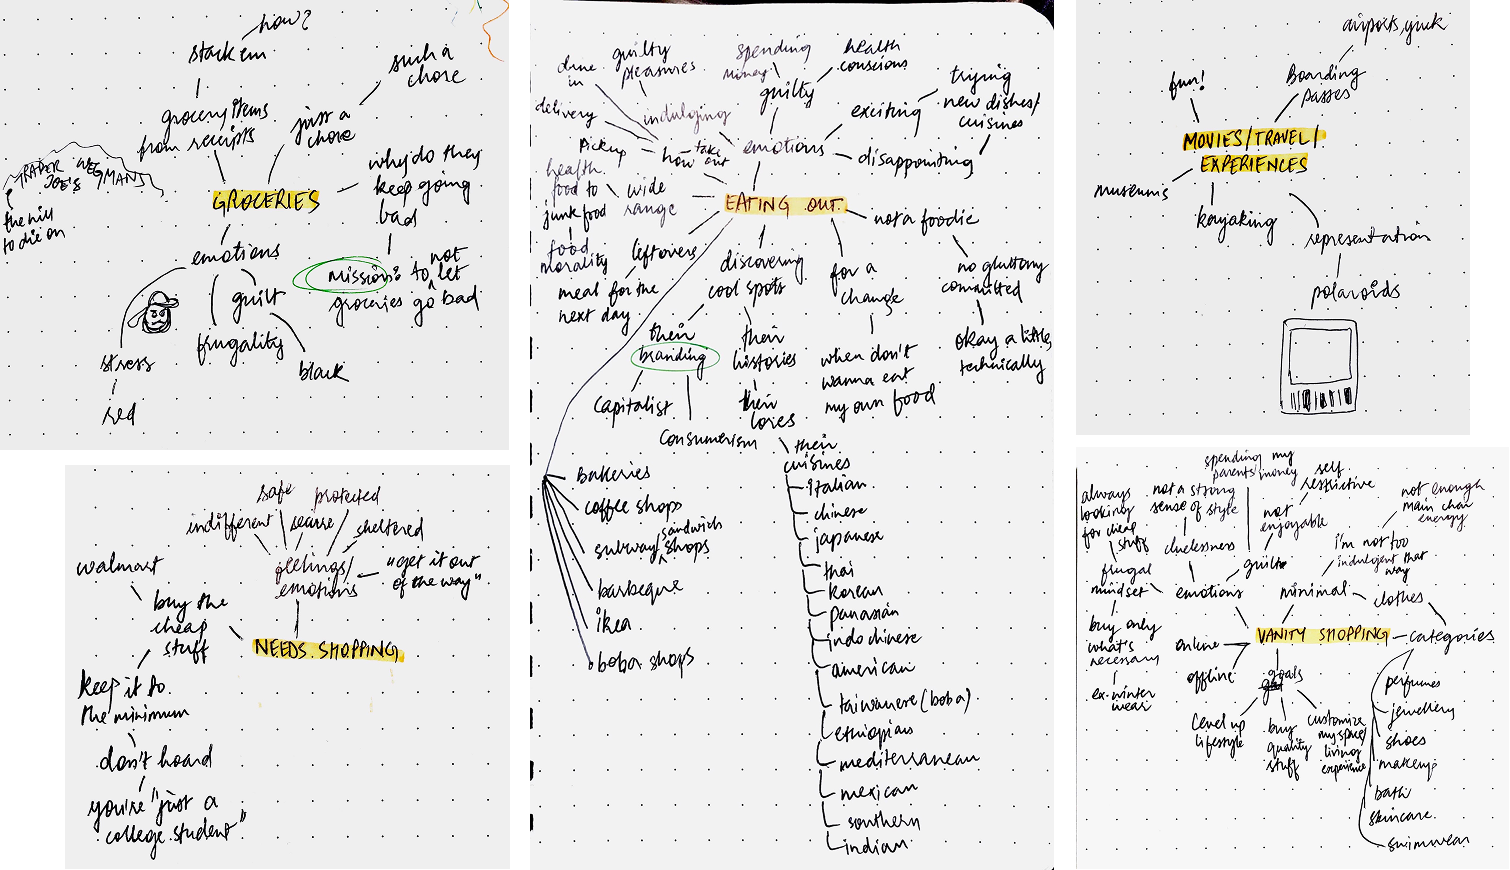 how?
stack em
such a
chore
grocery items
from receipts
just a
chore
TRADER JOE'S
WEGMANS
the hill
to die on
why do they
keep going
bad
GROCERIES
emotions
mission: to not let
groceries go bad
guilt
frugality
stress
black
red
safe
protected
indifferent
secure
sheltered
walmart
feelings/
emotions
"get it out
of the way"
buy the
cheap
stuff
NEEDS SHOPPING
keep it to
the minimum
don't hoard
you're "just a
college student"
dine
in
guilty
pleasures
spending
money
health
conscious
delivery
indulging
guilty
exciting
trying
new dishes/
cuisines
pickup
how
take
out
emotions
disappointing
health
food to
junk food
wide
range
EATING OUT
not a foodie
food
morality
leftovers
meal for the
next day
discovering
cool spots
for a
change
no gluttony
committed
their
branding
their
histories
when don't
wanna eat
my own food
okay a little,
technically
capitalist
consumerism
their
lores
their
cuisines
bakeries
coffee shops
subway/sandwich shops
barbeque
ikea
boba shops
italian
chinese
japanese
thai
korean
panasian
indo chinese
american
taiwanese (boba)
ethiopian
mediterranean
mexican
southern
indian
airports, yuck
fun!
Boarding
passes
MOVIES/TRAVEL/
EXPERIENCES
museums
kayaking
representation
polaroids
always
looking
for cheap
stuff
not a strong
sense of style
spending my
parents money
self
restrictive
not enough
main char
energy
not
enjoyable
frugal
mindset
cluelessness
guilt
i'm not too
indulgent that
way
emotions
minimal
clothes
buy only
what's
necessary
online
VANITY SHOPPING
categories
ex-winter
wear
offline
goals
level up
lifestyle
buy
quality
stuff
customize
my space/
living
experience
perfumes
jewellery
shoes
makeup
bath
skincare
swimwear